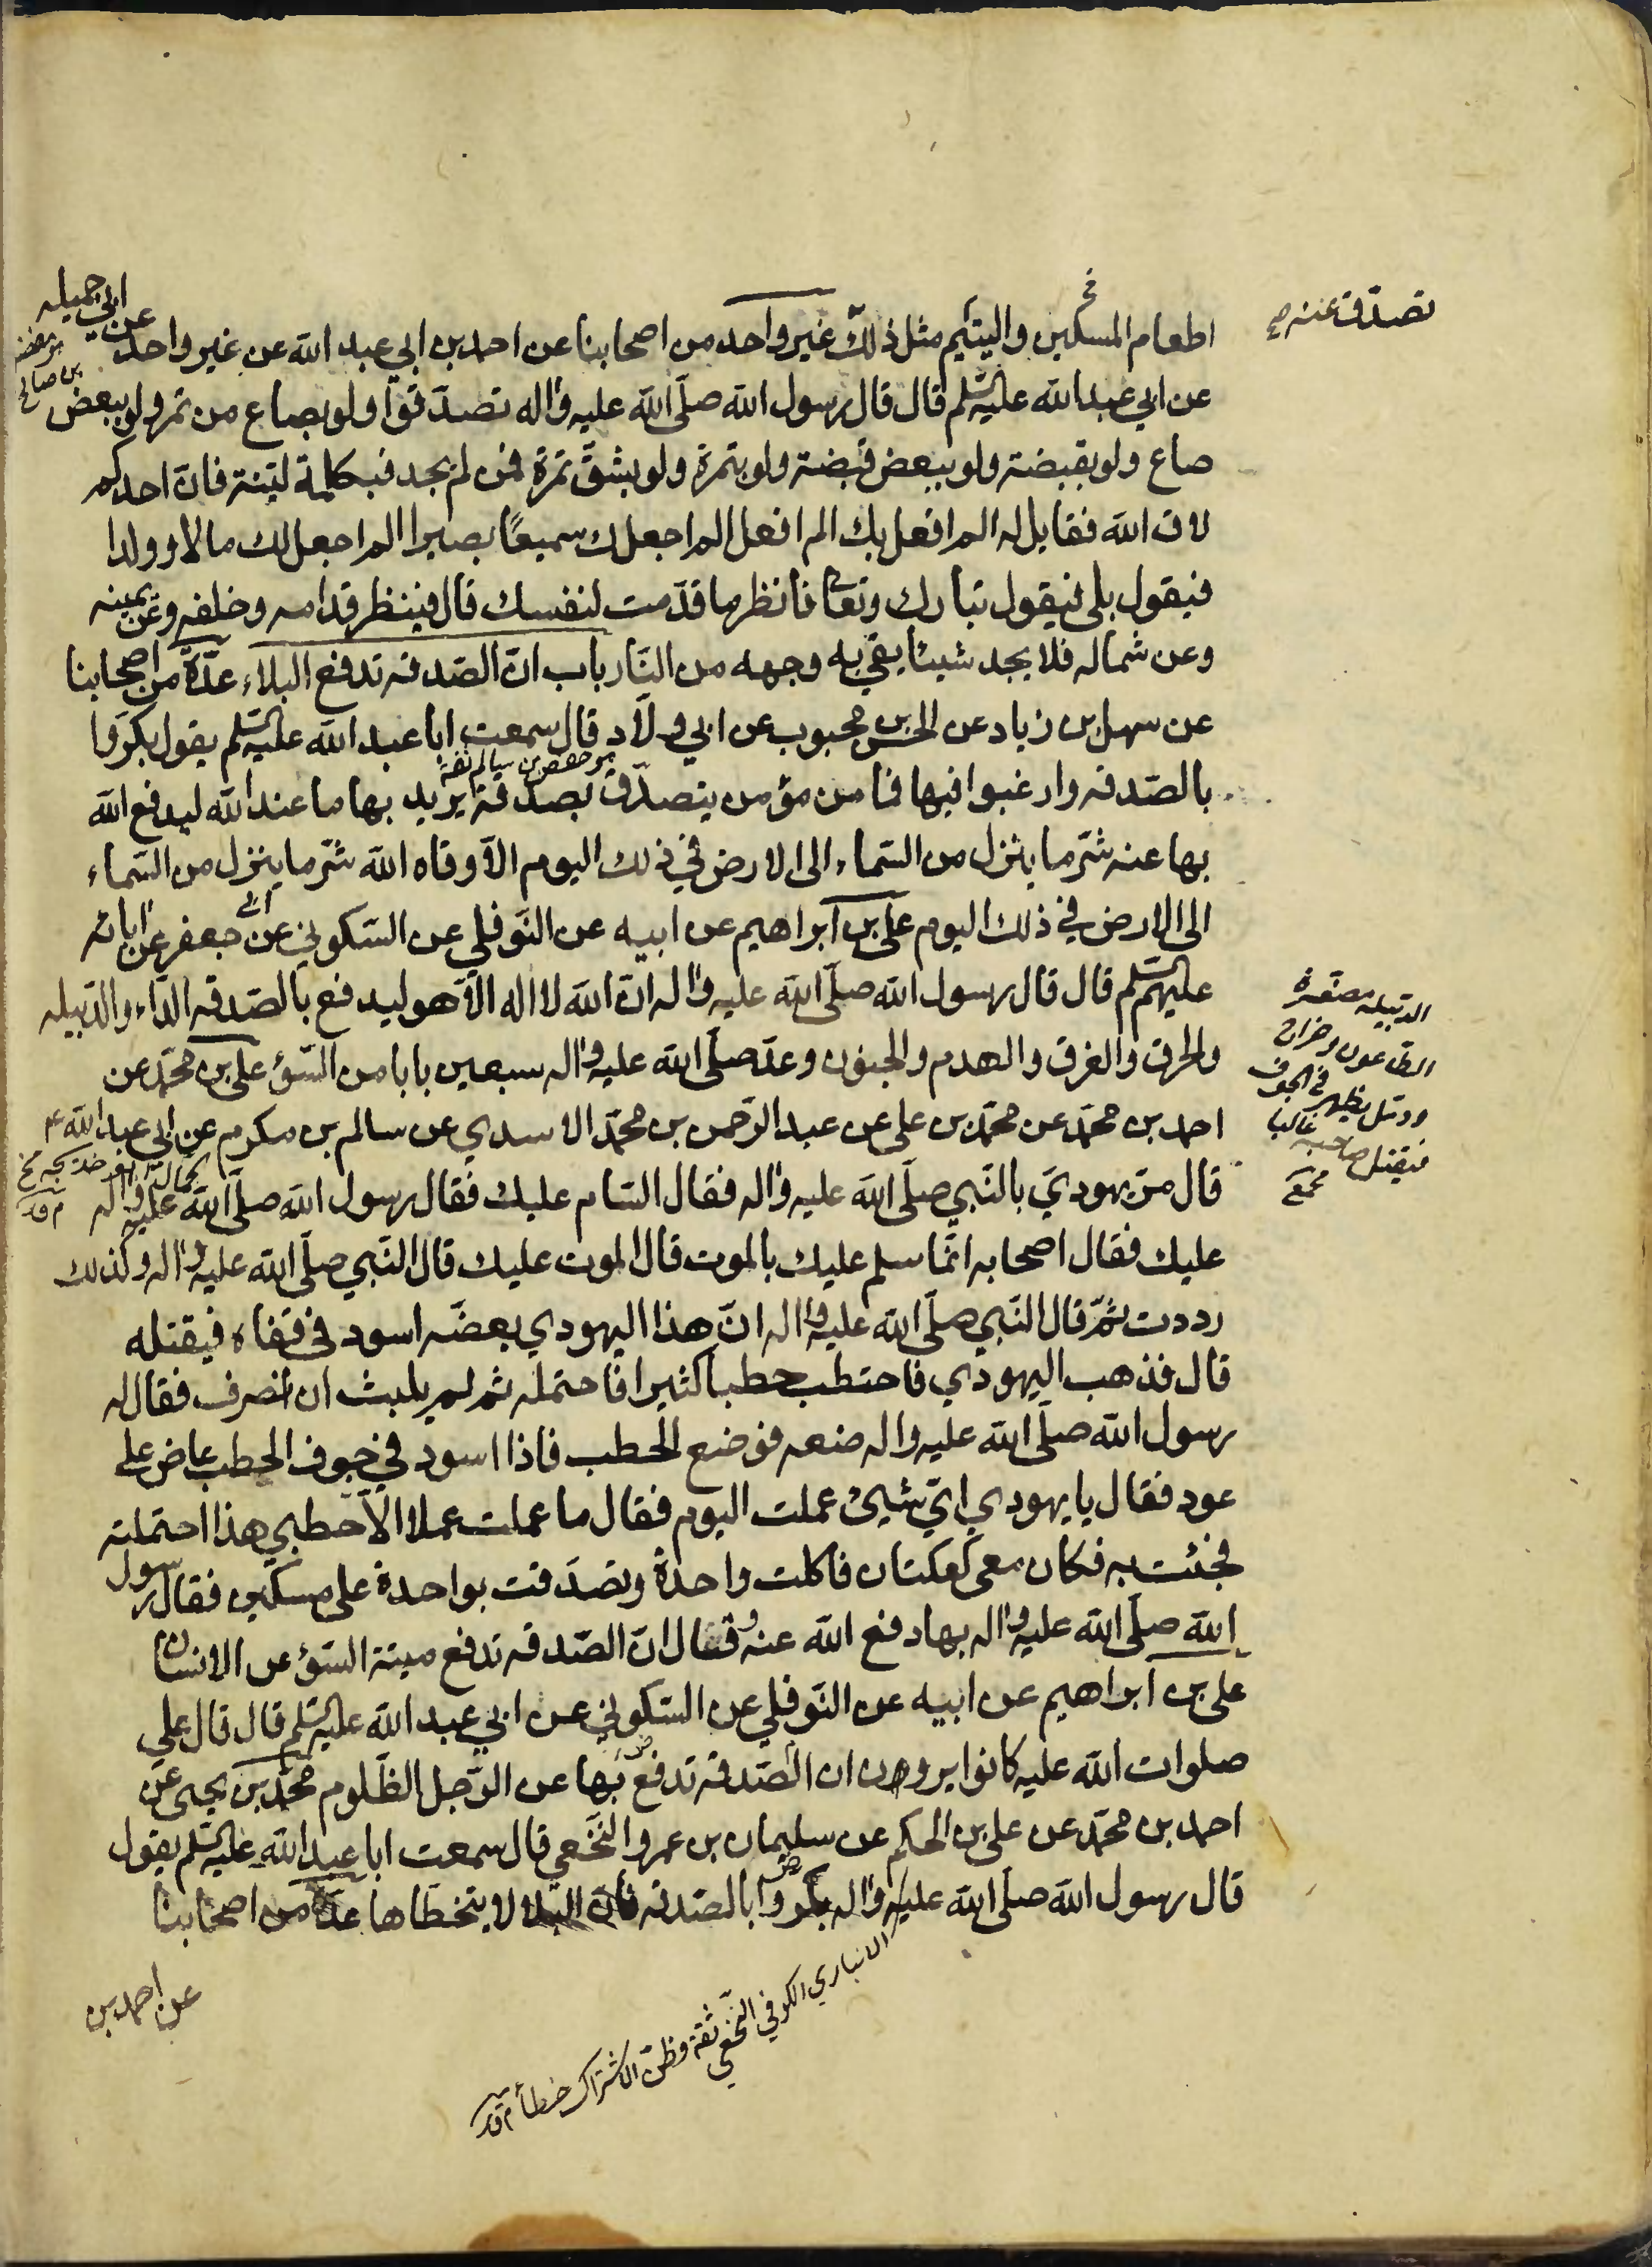 تصدّق عنه صح
اطعام المسكين واليتيم مثل ذلك غير واحد من اصحابنا عن احمد بن ابي عبد الله عن غير واحد عن ابي جميله
هو مفضل بن صالح
عن ابي عبد الله عليه السّلم قال قال رسول الله صلّى الله عليه واله تصدّقوا ولو بصاع من تمر ولو ببعض
صاع ولو بقبضة ولو ببعض قبضة ولو بتمرة ولو بشقّ تمرة فمن لم يجد فبكلمة ليّنة فانّ احدكم
لاق الله فقايل له الم افعل بك الم افعل الم اجعلك سميعًا بصيرا الم اجعل لك مالا وولدا
فيقول بلى فيقول تبارك وتعا فانظر ما قدّمت لنفسك قال فينظر قدامه وخلفه وعن يمينه
وعن شماله فلا يجد شيئا يقي به وجهه من النّار باب انّ الصّدقه تدفع البلاء عدّة من اصحابنا
عن سهل بن زياد عن الحسن بن محبوب عن ابي ولّاد قال سمعت ابا عبد الله عليه السّلم يقول بكّروا
هو حفص بن سالم ثقة
بالصّدقه وارغبوا فيها فما من مؤمن يتصدّق بصدقة يريد بها ما عند الله ليدفع الله
بها عنه شرّ ما ينزل من السّماء الى الارض في ذلك اليوم الّا وقاه الله شرّ ما ينزل من السّماء
الى الارض في ذلك اليوم علي بن ابراهيم عن ابيه عن النّوفلي عن السّكوني عن جعفر عن ابائه
عليهم السّلم قال قال رسول الله صلّى الله عليه واله انّ الله لا اله الّا هو ليدفع بالصّدقه الدّاء والدّبيله
والحرق والغرق والهدم والجنون وعدّ صلّى الله عليه واله سبعين بابا من السّؤ علي بن محمّد عن
احمد بن محمّد عن محمّد بن علي عن عبد الرّحمن بن محمّد الاسدي عن سالم بن مكرم عن ابي عبد الله ع
الدّبيله مصغّرة
الطاعون وخراج
ودمّل يظهر في الجوف
فيقتل صاحبه غالبا
مجمع
قال مرّ يهوديّ بالنّبي صلّى الله عليه واله فقال السّام عليك فقال رسول الله صلّى الله عليه واله
عليك فقال اصحابه انّما سلم عليك بالموت قال الموت عليك قال النّبي صلّى الله عليه واله وكذلك
رددت ثمّ قال النّبي صلّى الله عليه واله انّ هذا اليهودي يعضّه اسود في قفاه فيقتله
قال فذهب اليهودي فاحتطب حطبا كثيرا فاحتمله ثم لم يلبث ان انصرف فقال له
رسول الله صلّى الله عليه واله ضعه فوضع الحطب فاذا اسود في جوف الحطب عاض على
عود فقال يا يهودي ايّ شيئ عملت اليوم فقال ما عملت عملا الّا حطبي هذا احتملته
فجئت به فكان معي كعكتان فاكلت واحدة وتصدّقت بواحدة على مسكين فقال رسول
الله صلّى الله عليه واله بها دفع الله عنه وقال انّ الصّدقه تدفع ميتة السّؤ عن الانسان
علي بن ابراهيم عن ابيه عن النّوفلي عن السّكوني عن ابي عبد الله عليه السّلم قال قال علي
صلوات الله عليه كانوا يرون ان الصّدقه تدفع بها عن الرّجل الظّلوم محمّد بن يحيى عن
احمد بن محمّد عن علي بن الحكم عن سليمان بن عمرو النّخعي قال سمعت ابا عبد الله عليه السّلم يقول
قال رسول الله صلّى الله عليه واله بكّروا بالصّدقه فانّ البلاء لا يتخطّاها عدّة من اصحابنا
الانباري الكوفي النّخعي ثقة وظنّ الاشتراك خطأ م ق د
عن احمد بن